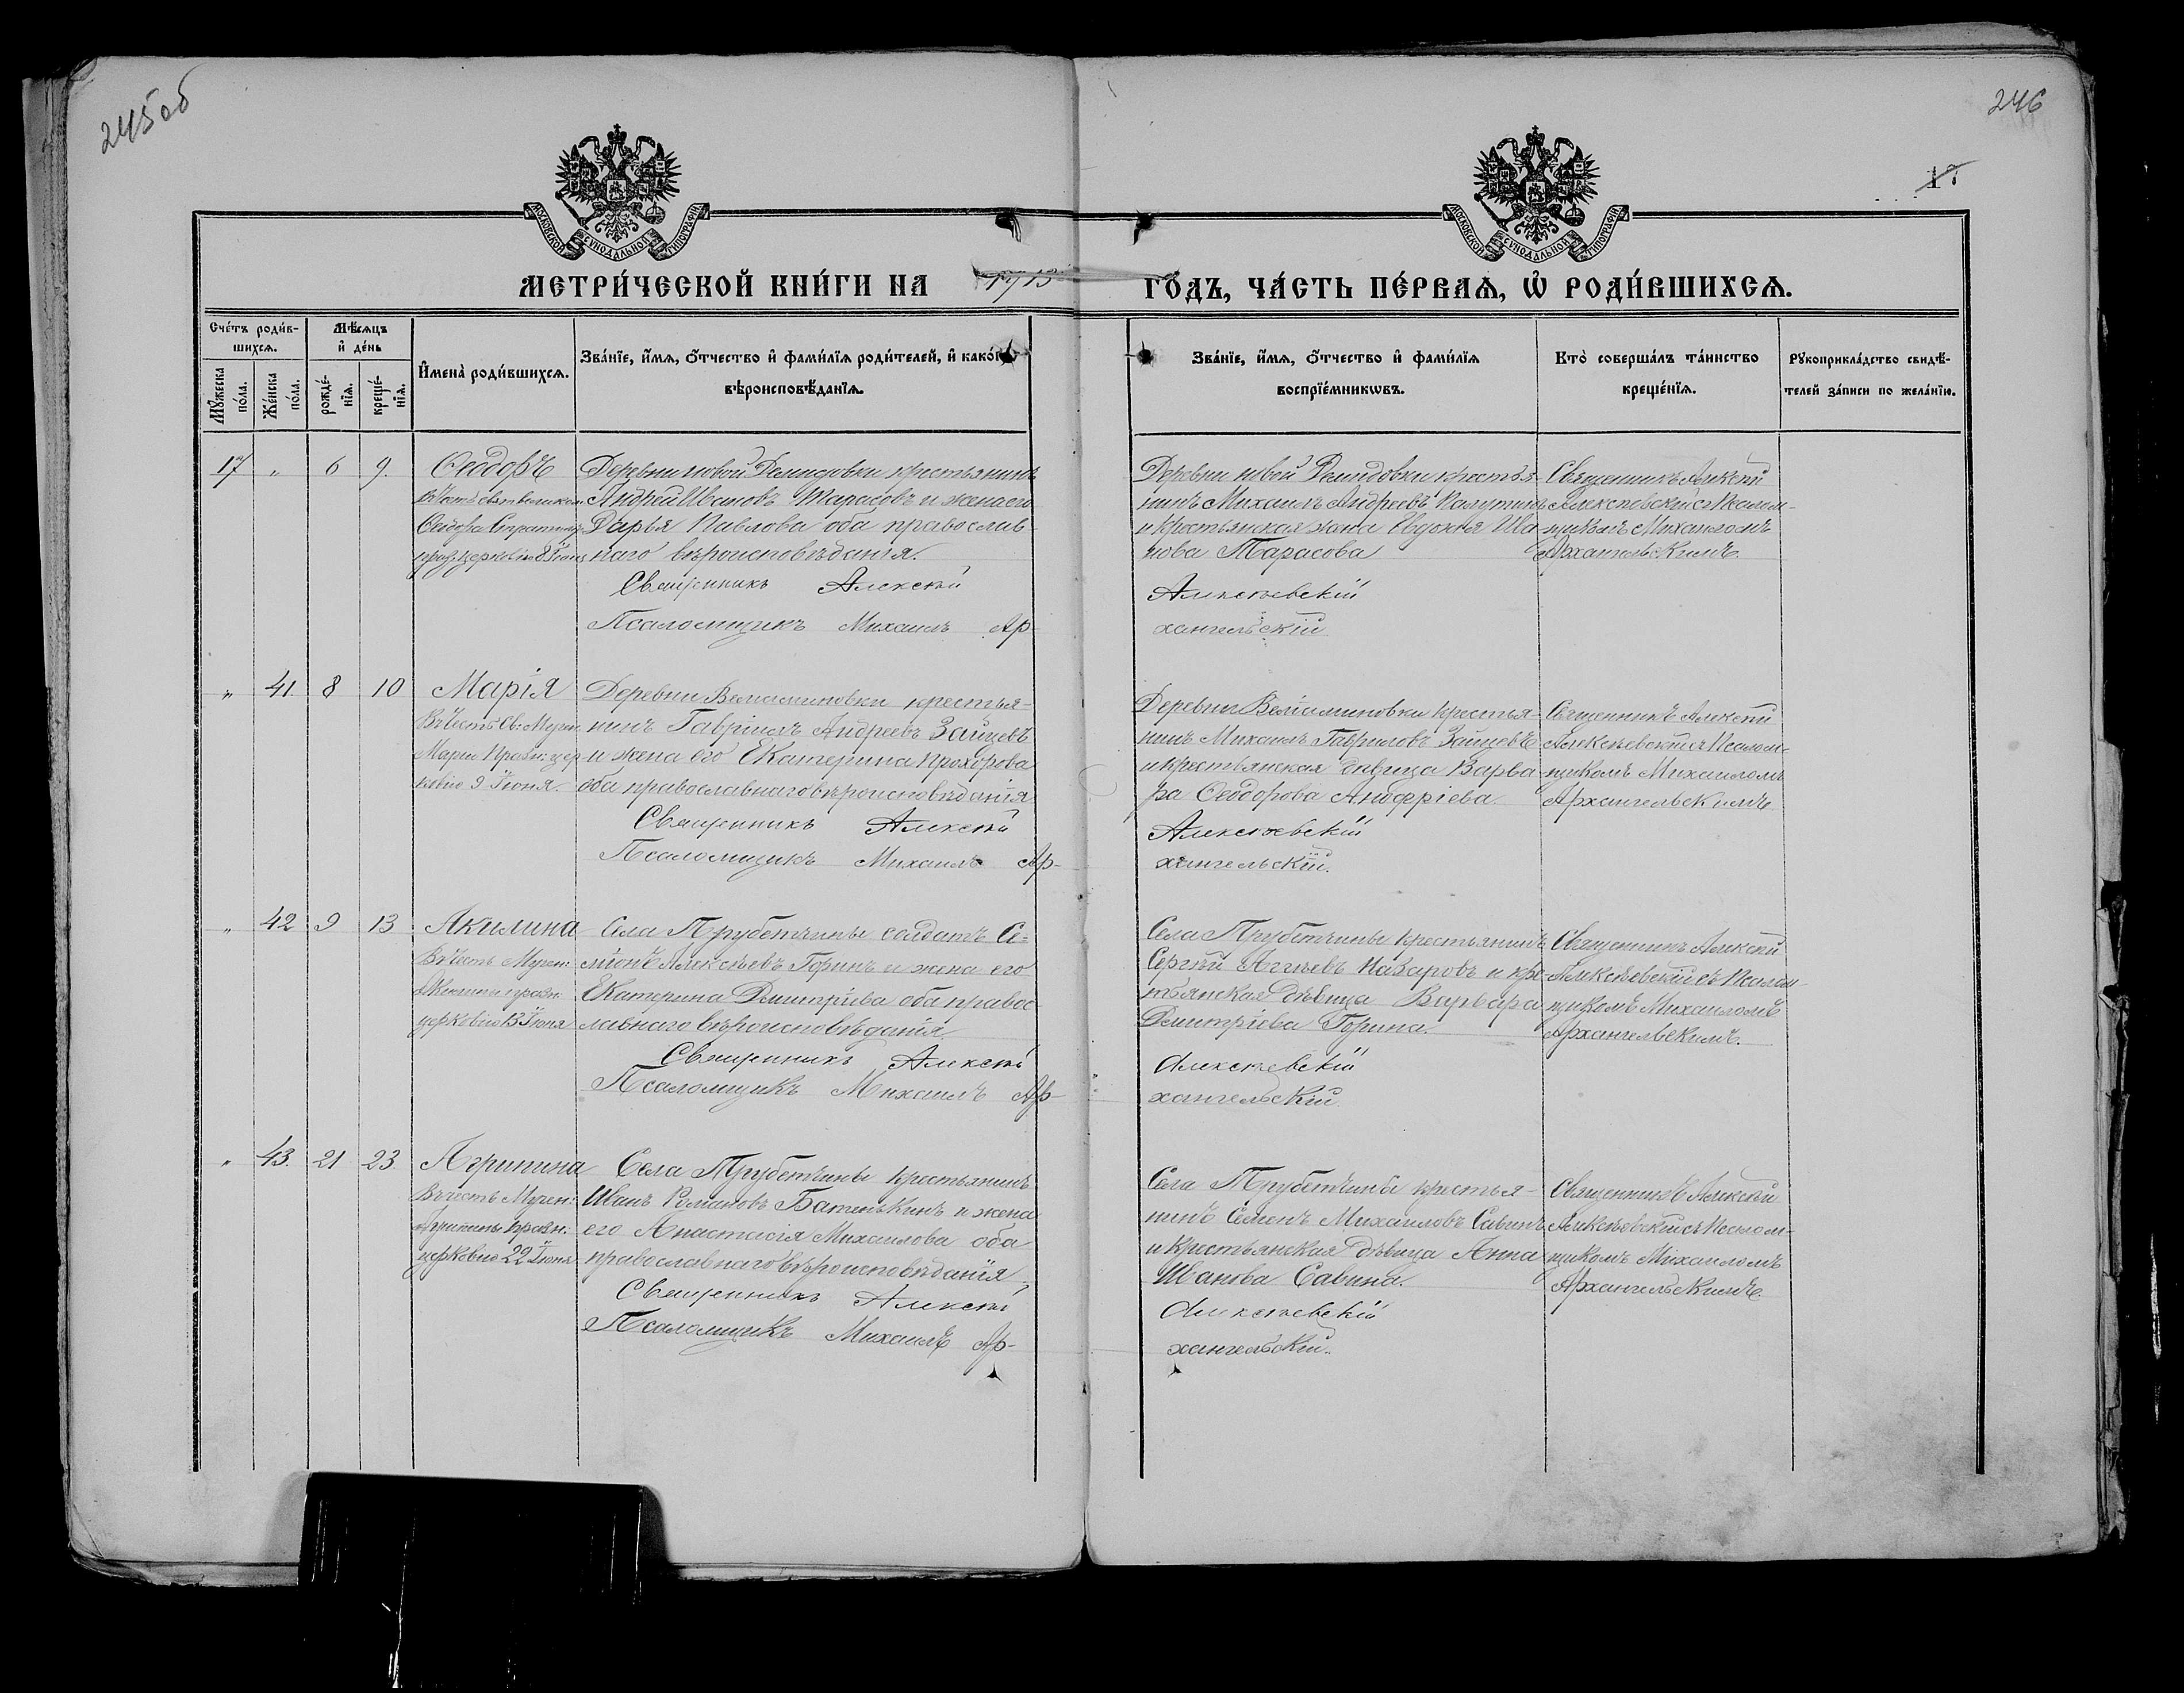 245об
246
17
МОСКОВСКОЙ СѴНОДАЛЬНОЙ ТИПОГРАФІИ
МОСКОВСКОЙ СѴНОДАЛЬНОЙ ТИПОГРАФІИ
МЕТРИ́ЧЕСКОЙ КНИ́ГИ НА 1913 ГО́ДЪ, ЧА́СТЬ ПЕ́РВАѦ, Ѡ҆ РОДИ́ВШИХСѦ.
Сче́тъ роди́в-
шихсѧ.
Мꙋ́жеска по́ла.
Же́нска по́ла.
Мѣ́сѧцъ
и҆ де́нь
рожде́-нїѧ.
креще́-нїѧ.
И҆мена̀ роди́вшихсѧ.
Зва́нїе, и҆́мѧ, ѻ҆́тчество и҆ фами́лїѧ роди́телей, и҆ како́гѡ
вѣроисповѣ́данїѧ.
Зва́нїе, и҆́мѧ, ѻ҆́тчество и҆ фами́лїѧ
воспрїе́мникѡвъ.
Кто̀ соверша́лъ та́инство
креще́нїѧ.
Рꙋкоприкла́дство свидѣ́-
телей за́писи по жела́нїю.
17 " 6 9. Ѳеодоръ
въ честь св. великом.
Ѳеодора Стратилата
праз. церковію 8 Іюня
Деревни новой Демидовки крестьянинъ
Андрей Ивановъ Тарасовъ и жена его
Дарья Павлова оба православ-
наго вѣроисповѣданія.
Священникъ Алексѣй
Псаломщикъ Михаилъ Ар-
Деревни новой Демидовки крестья-
нинъ Михаилъ Андреевъ
и крестьянская жена Евдокія Ива-
нова Тарасова
Алексѣевскій
хангельскій
Священникъ Алексѣй
Алексѣевскій съ Псалом-
щикомъ Михаиломъ
Архангельскимъ.
" 41 8 10 Марія
Въ честь Св. Мучен.
Маріи Празн. цер-
ковію 9 Іюня.
Деревни Вельяминовки крестья-
нинъ Гавріилъ Андреевъ Зайцевъ
и жена его Екатерина Прохорова
оба православнаго вѣроисповѣданія
Священникъ Алексѣй
Псаломщикъ Михаилъ Ар-
Деревни Вельяминовки крестья-
нинъ Михаилъ Гавриловъ Зайцевъ
и крестьянская дѣвица Варва-
ра Ѳеодорова
Алексѣевскій
хангельскій.
Священникъ Алексѣй
Алексѣевскій съ Псалом-
щикомъ Михаиломъ
Архангельскимъ
" 42 9 13 Акилина
Въ честь Мучен:
Акилины празн.
церковію 13 Іюня
Села Трубетчины солдатъ Си-
міонъ Алексѣевъ Горинъ и жена его
Екатерина Димитріева оба правос-
лавнаго вѣроисповѣданія
Священникъ Алексѣй
Псаломщикъ Михаилъ Ар-
Села Трубетчины крестьянинъ
Сергѣй Макаровъ и крес-
тьянская дѣвица Варвара
Димитріева Горина.
Алексѣевскій
хангельскій
Священникъ Алексѣй
Алексѣевскій съ Псалом-
щикомъ Михаиломъ
Архангельскимъ.
" 43. 21 23. Агрипина
Въ честь Мучен:
Агрипины празн:
церковію Іюня
Села Трубетчины крестьянинъ
Иванъ Романовъ Батенькинъ и жена
его Анастасія Михаилова оба
православнаго вѣроисповѣданія
Священникъ Алексѣй
Псаломщикъ Михаилъ Ар-
Села Трубетчины крестья-
нинъ Семенъ Михаиловъ Савинъ
и крестьянская дѣвица Анна
Иванова Савина.
Алексѣевскій
хангельскій.
Священникъ Алексѣй
Алексѣевскій съ Псалом-
щикомъ Михаиломъ
Архангельскимъ.